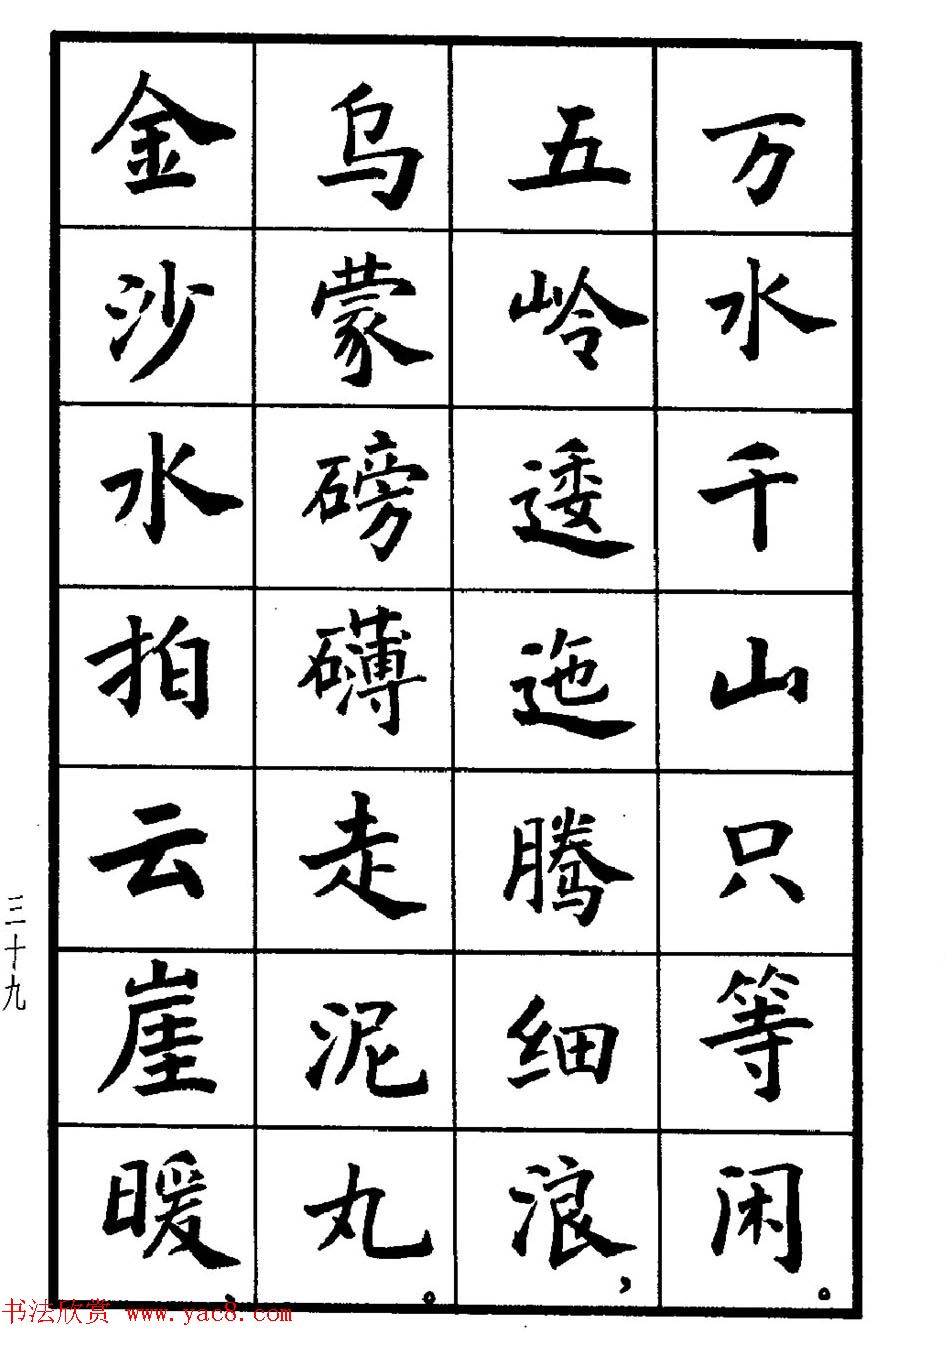 万水千山只等闲。
五岭逶迤腾细浪，
乌蒙磅礴走泥丸。
金沙水拍云崖暖，
三十九
书法欣赏 www.yac8.com